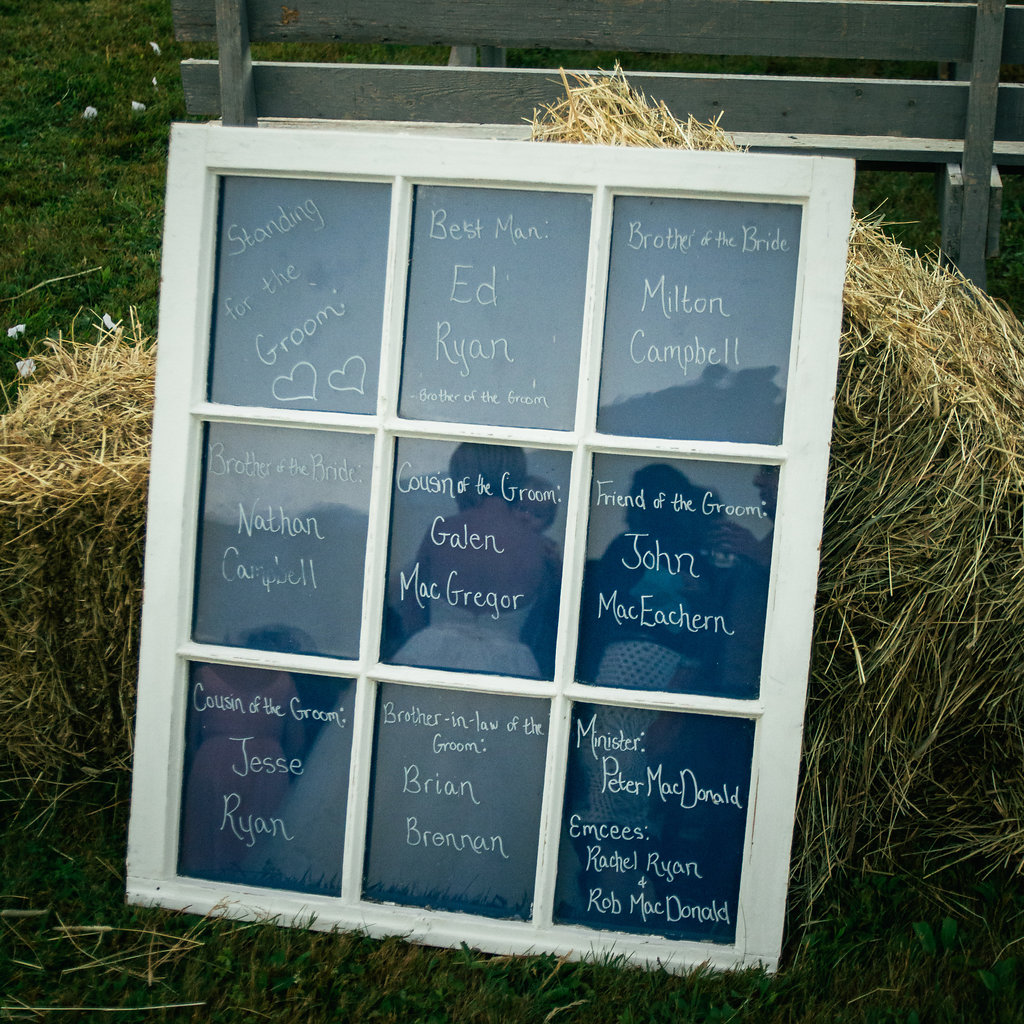 Standing
for the
Groom:
Best Man:
Ed
Ryan
- Brother of the Groom
Brother of the Bride
Milton
Campbell
Brother of the Bride:
Nathan
Campbell
Cousin of the Groom:
Galen
MacGregor
Friend of the Groom:
John
MacEachern
Cousin of the Groom:
Jesse
Ryan
Brother-in-law of the
Groom:
Brian
Brennan
Minister:
Peter MacDonald
Emcees:
Rachel Ryan
&
Rob MacDonald